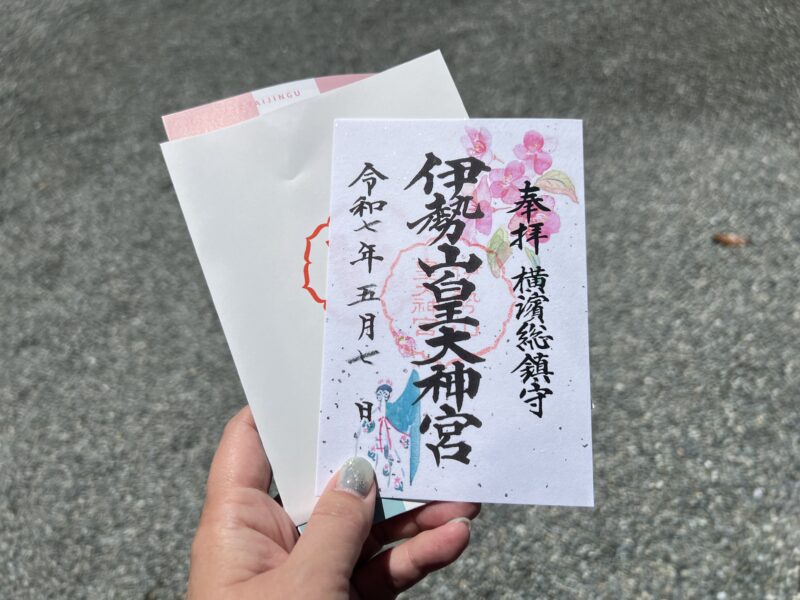 AIJINGU
奉拝 横濱総鎮守
伊勢山皇大神宮
令和七年五月七日